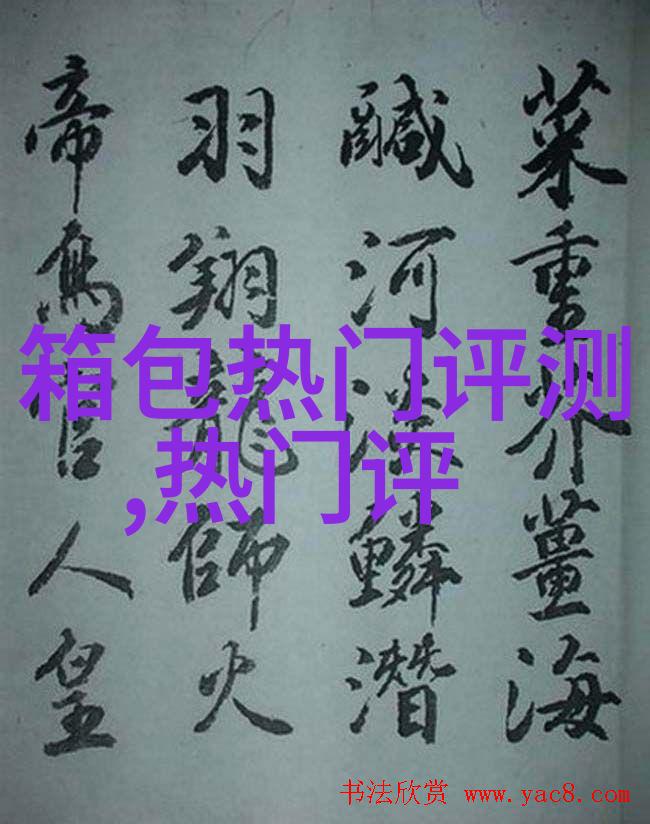 菜重芥薑海
鹹河淡鱗潛
羽翔龍師火
帝鳥官人皇
箱包热门评测
,热门评
书法欣赏 www.yac8.com